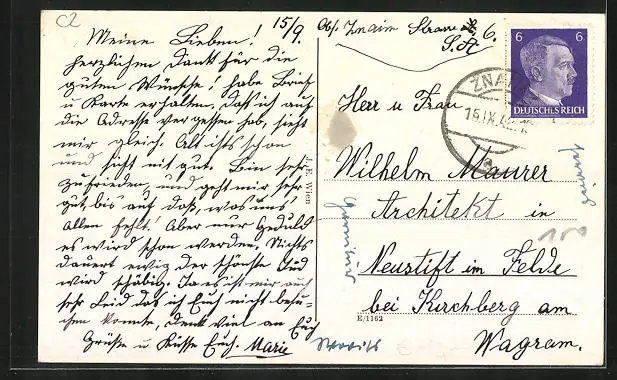 C2
15/9.
Meine Lieben!
herzlichen Dank für die
guten Wünsche! habe Brief
u Karte erhalten, daß ich auf
die Adresse vergessen hab, sieht
mir gleich. Alt ists schon
und sieht nit gut. Bin sehr
zufrieden, und geht mir sehr
gut, bis auf daß, was uns
allen fehlt! Aber nur Geduld
es wird schon werden. Nichts
dauert ewig der schönste Jud
wird schäbig. Ja es ist mir auch
sehr Leid das ich Euch nicht besu-
chen konnte, denkt viel an Euch
Grüße u Küsse Euch. Marie
J. E. Wien
E/1162
Abs. Znaim 6.
S.A.
6 6
DEUTSCHES REICH
ZNAIM
15.IX.42
a
Herr u Frau
Wilhelm Maurer
Architekt in
Neustift im Felde
bei Kirchberg am
Wagram.
150